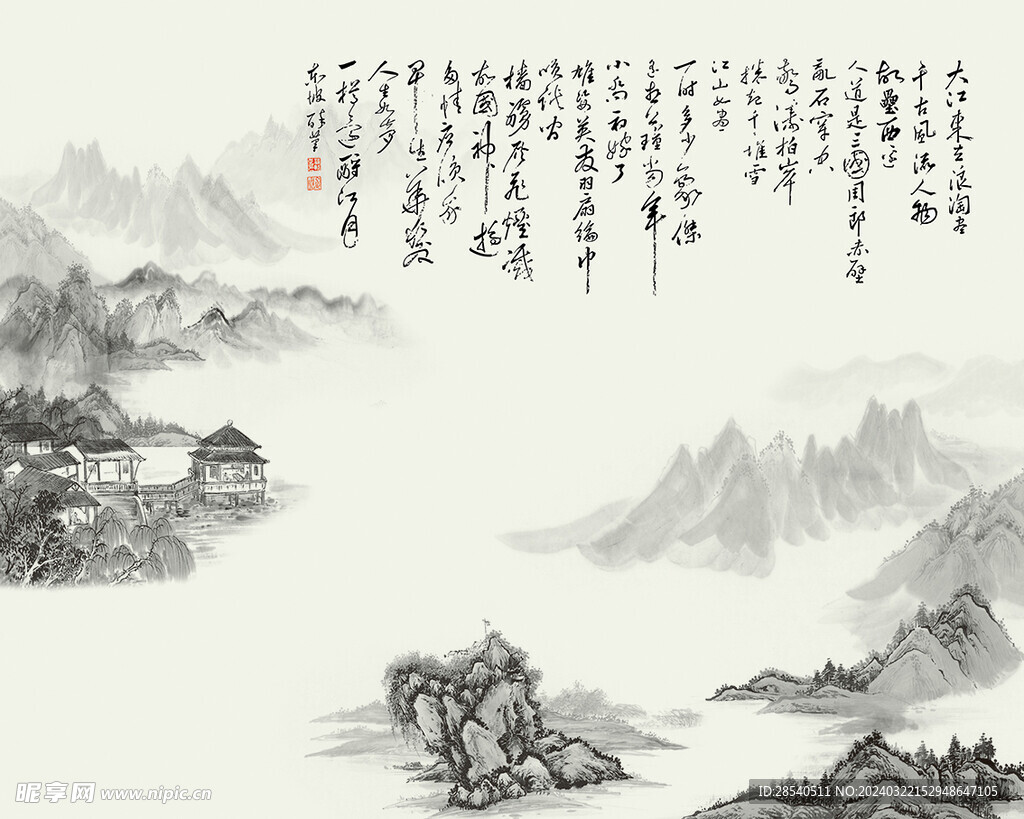 大江東去浪淘盡
千古風流人物
故壘西邊
人道是三國周郎赤壁
亂石穿空
驚濤拍岸
捲起千堆雪
江山如畫
一時多少豪傑
遙想公瑾當年
小喬初嫁了
雄姿英發羽扇綸巾
笑談間
檣艣灰飛煙滅
故國神遊
多情應笑我
早生華髮
人生如夢
一樽還酹江月
東坡醉筆
昵享网 www.nipic.cn
ID:28540511 NO:20240322152948647105